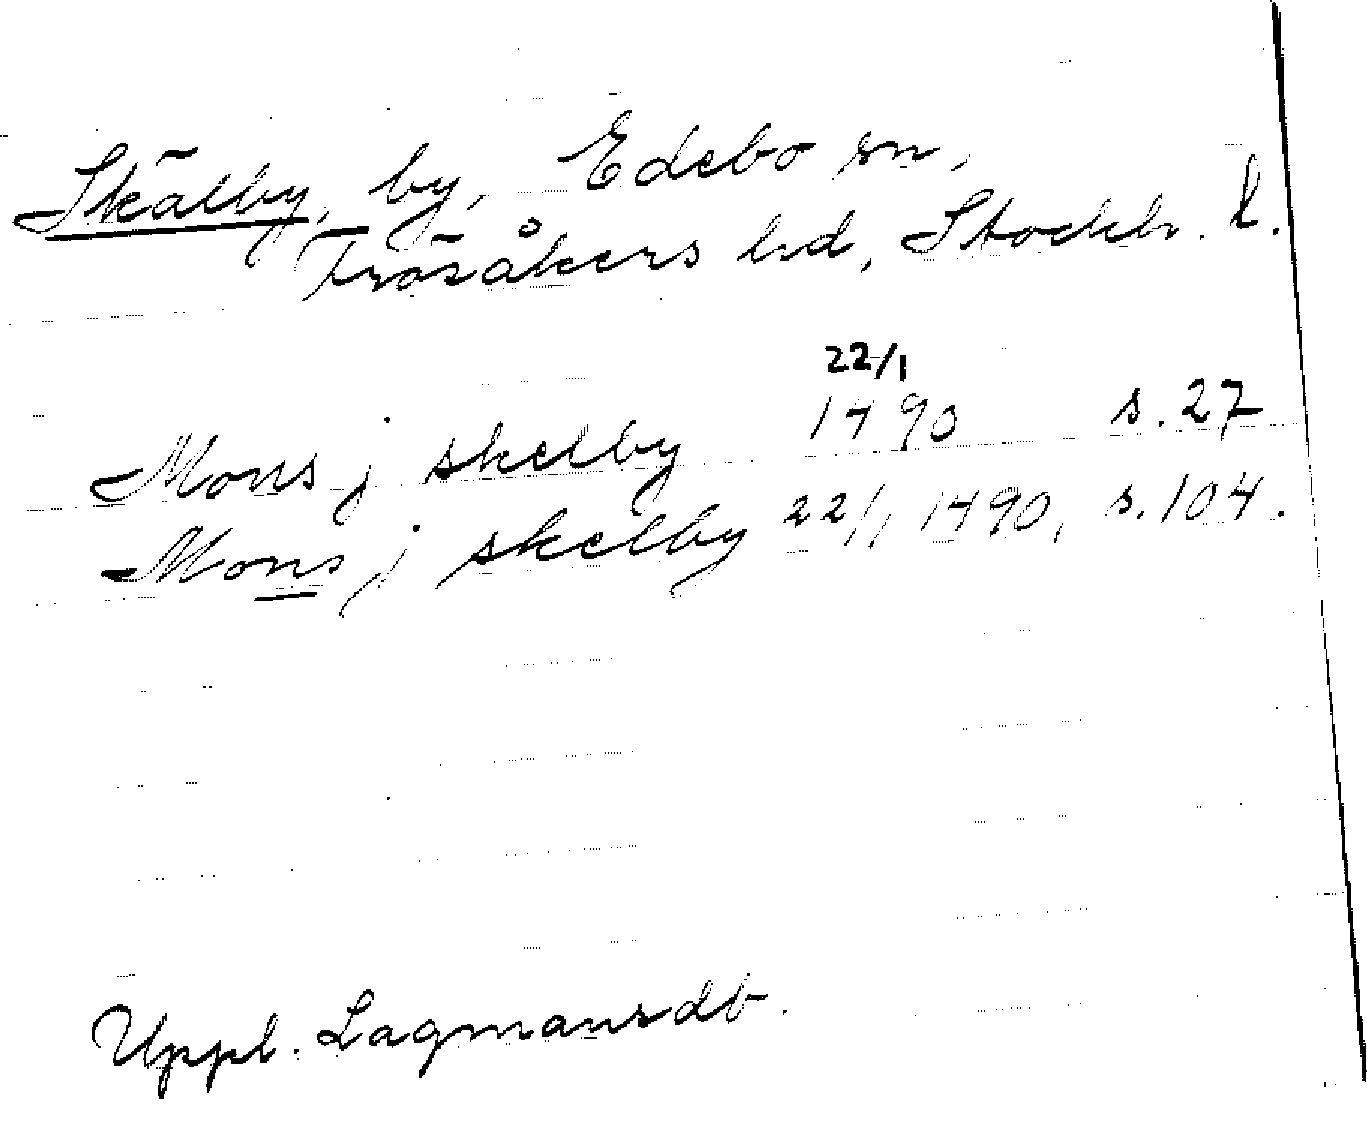 Skälby, by, Edebo sn,
Frösåkers hd, Stockh. l.
22/1
Mons j skelby 1490 s. 27
Mons j skelby 22/1 1490, s. 104.
Uppl. Lagmansdb.